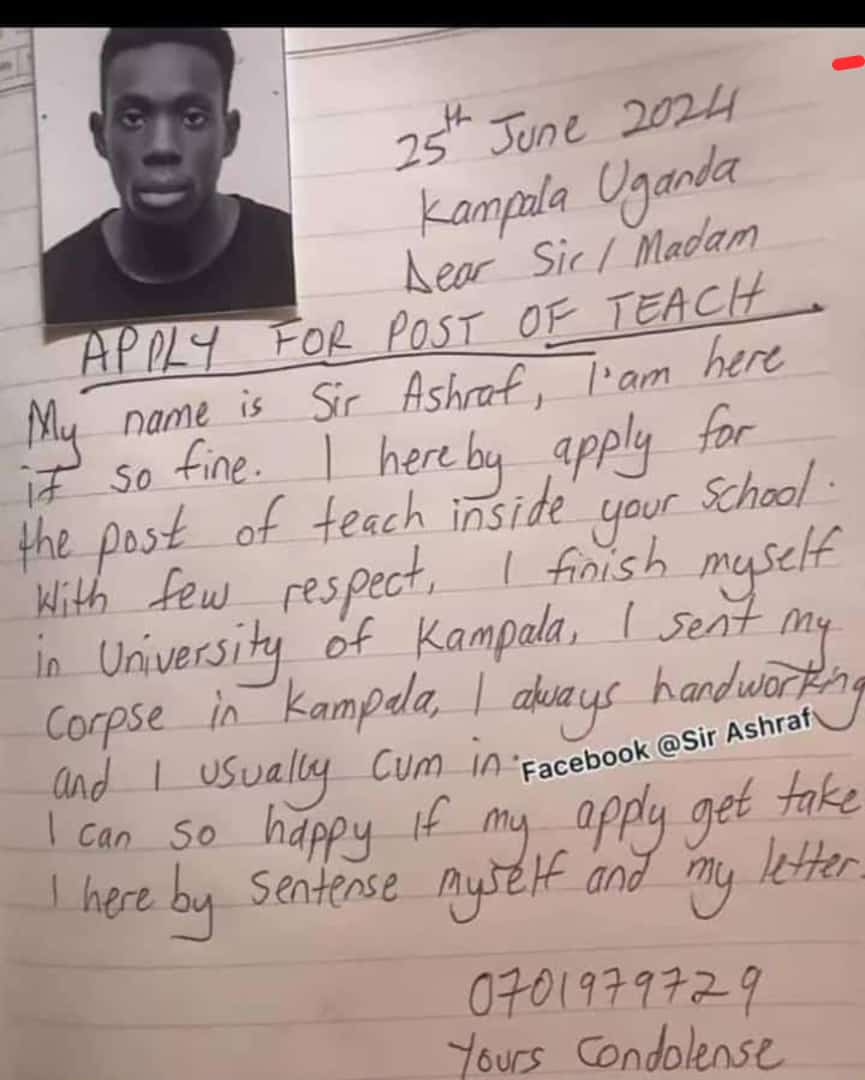 25th June 2024
Kampala Uganda
Dear Sir / Madam
APPLY FOR POST OF TEACH
My name is Sir Ashraf, I'am here
if so fine. I here by apply for
the post of teach inside your School.
With few respect, I finish myself
in University of Kampala, I sent my
Corpse in Kampala, I always handworking
and I usually Cum in.
Facebook @Sir Ashraf
I can so happy if my apply get take
I here by Sentense myself and my letter.
0701979729
Yours Condolense